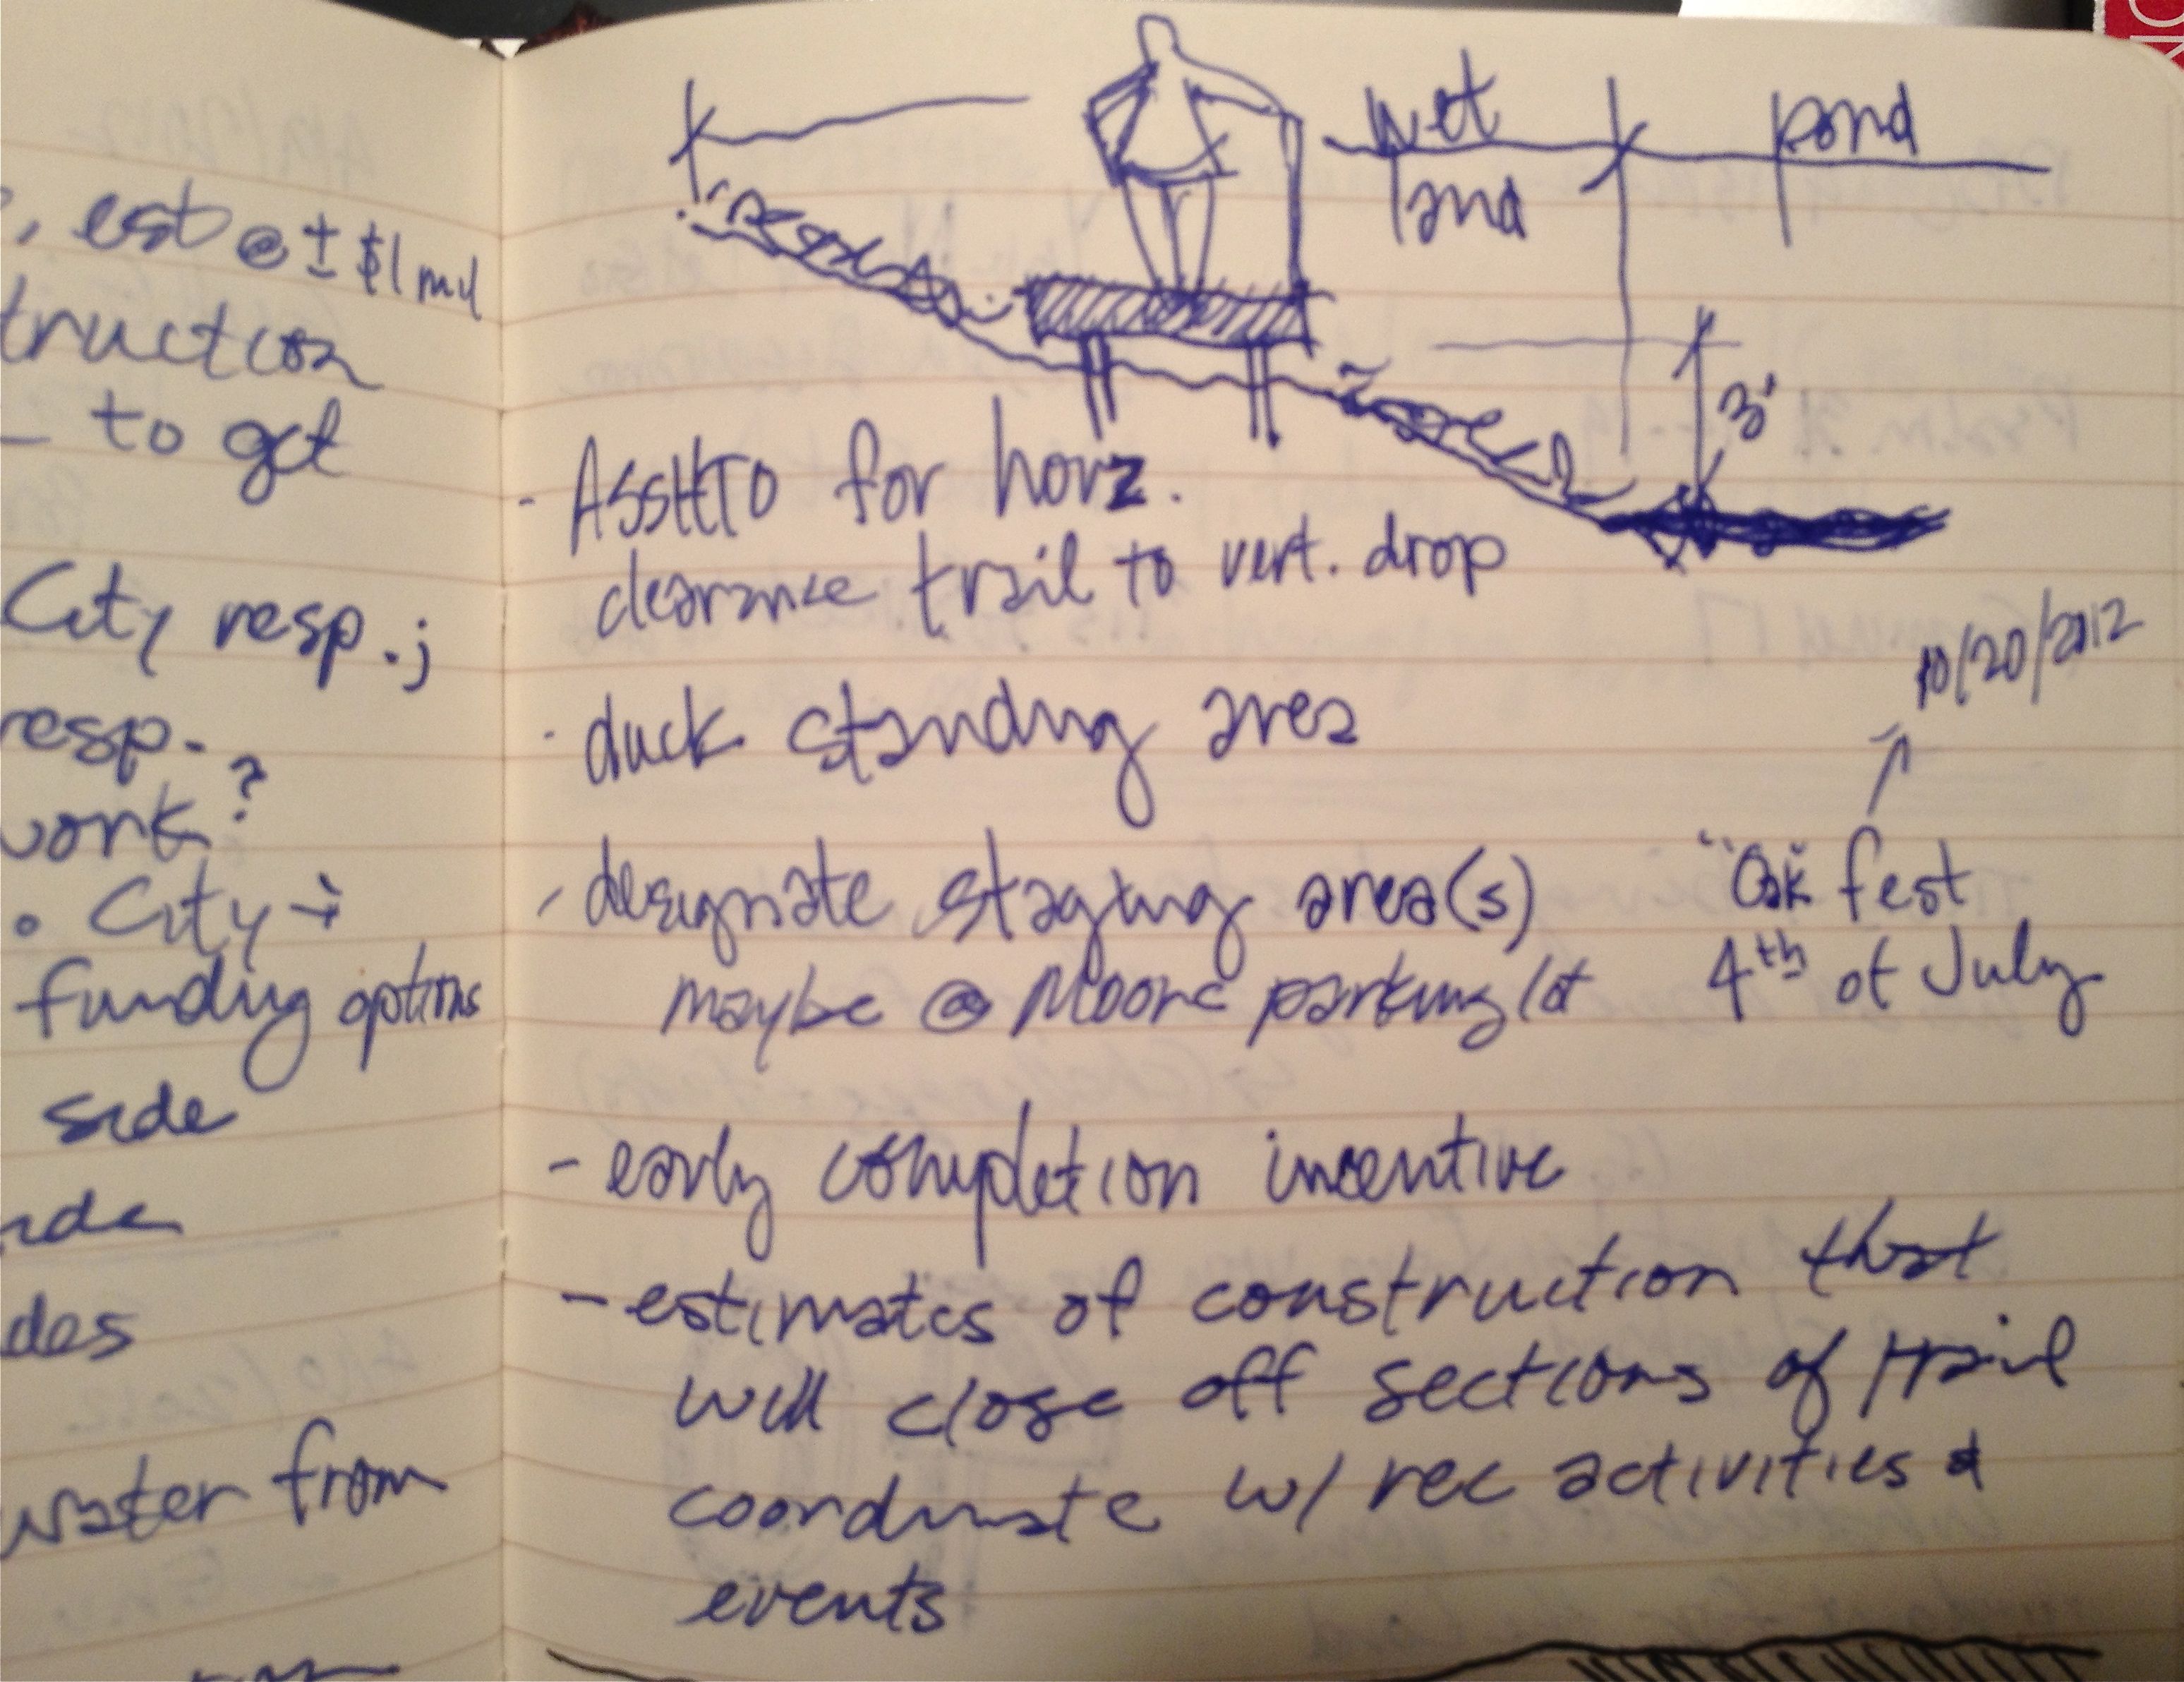 , est @ ± $1 mil
truction
– to get
City resp.;
resp.
work?
• City →
funding options
side
des
water from
wet pond
land
3'
- ASSHTO for horz.
clearance trail to vert. drop
10/20/2012
- duck standing area
- designate staging area(s)
maybe @ Moore parking lot
"Oak" fest
4th of July
- early completion incentive
- estimates of construction that
will close off sections of trail
coordinate w/ rec activities &
events